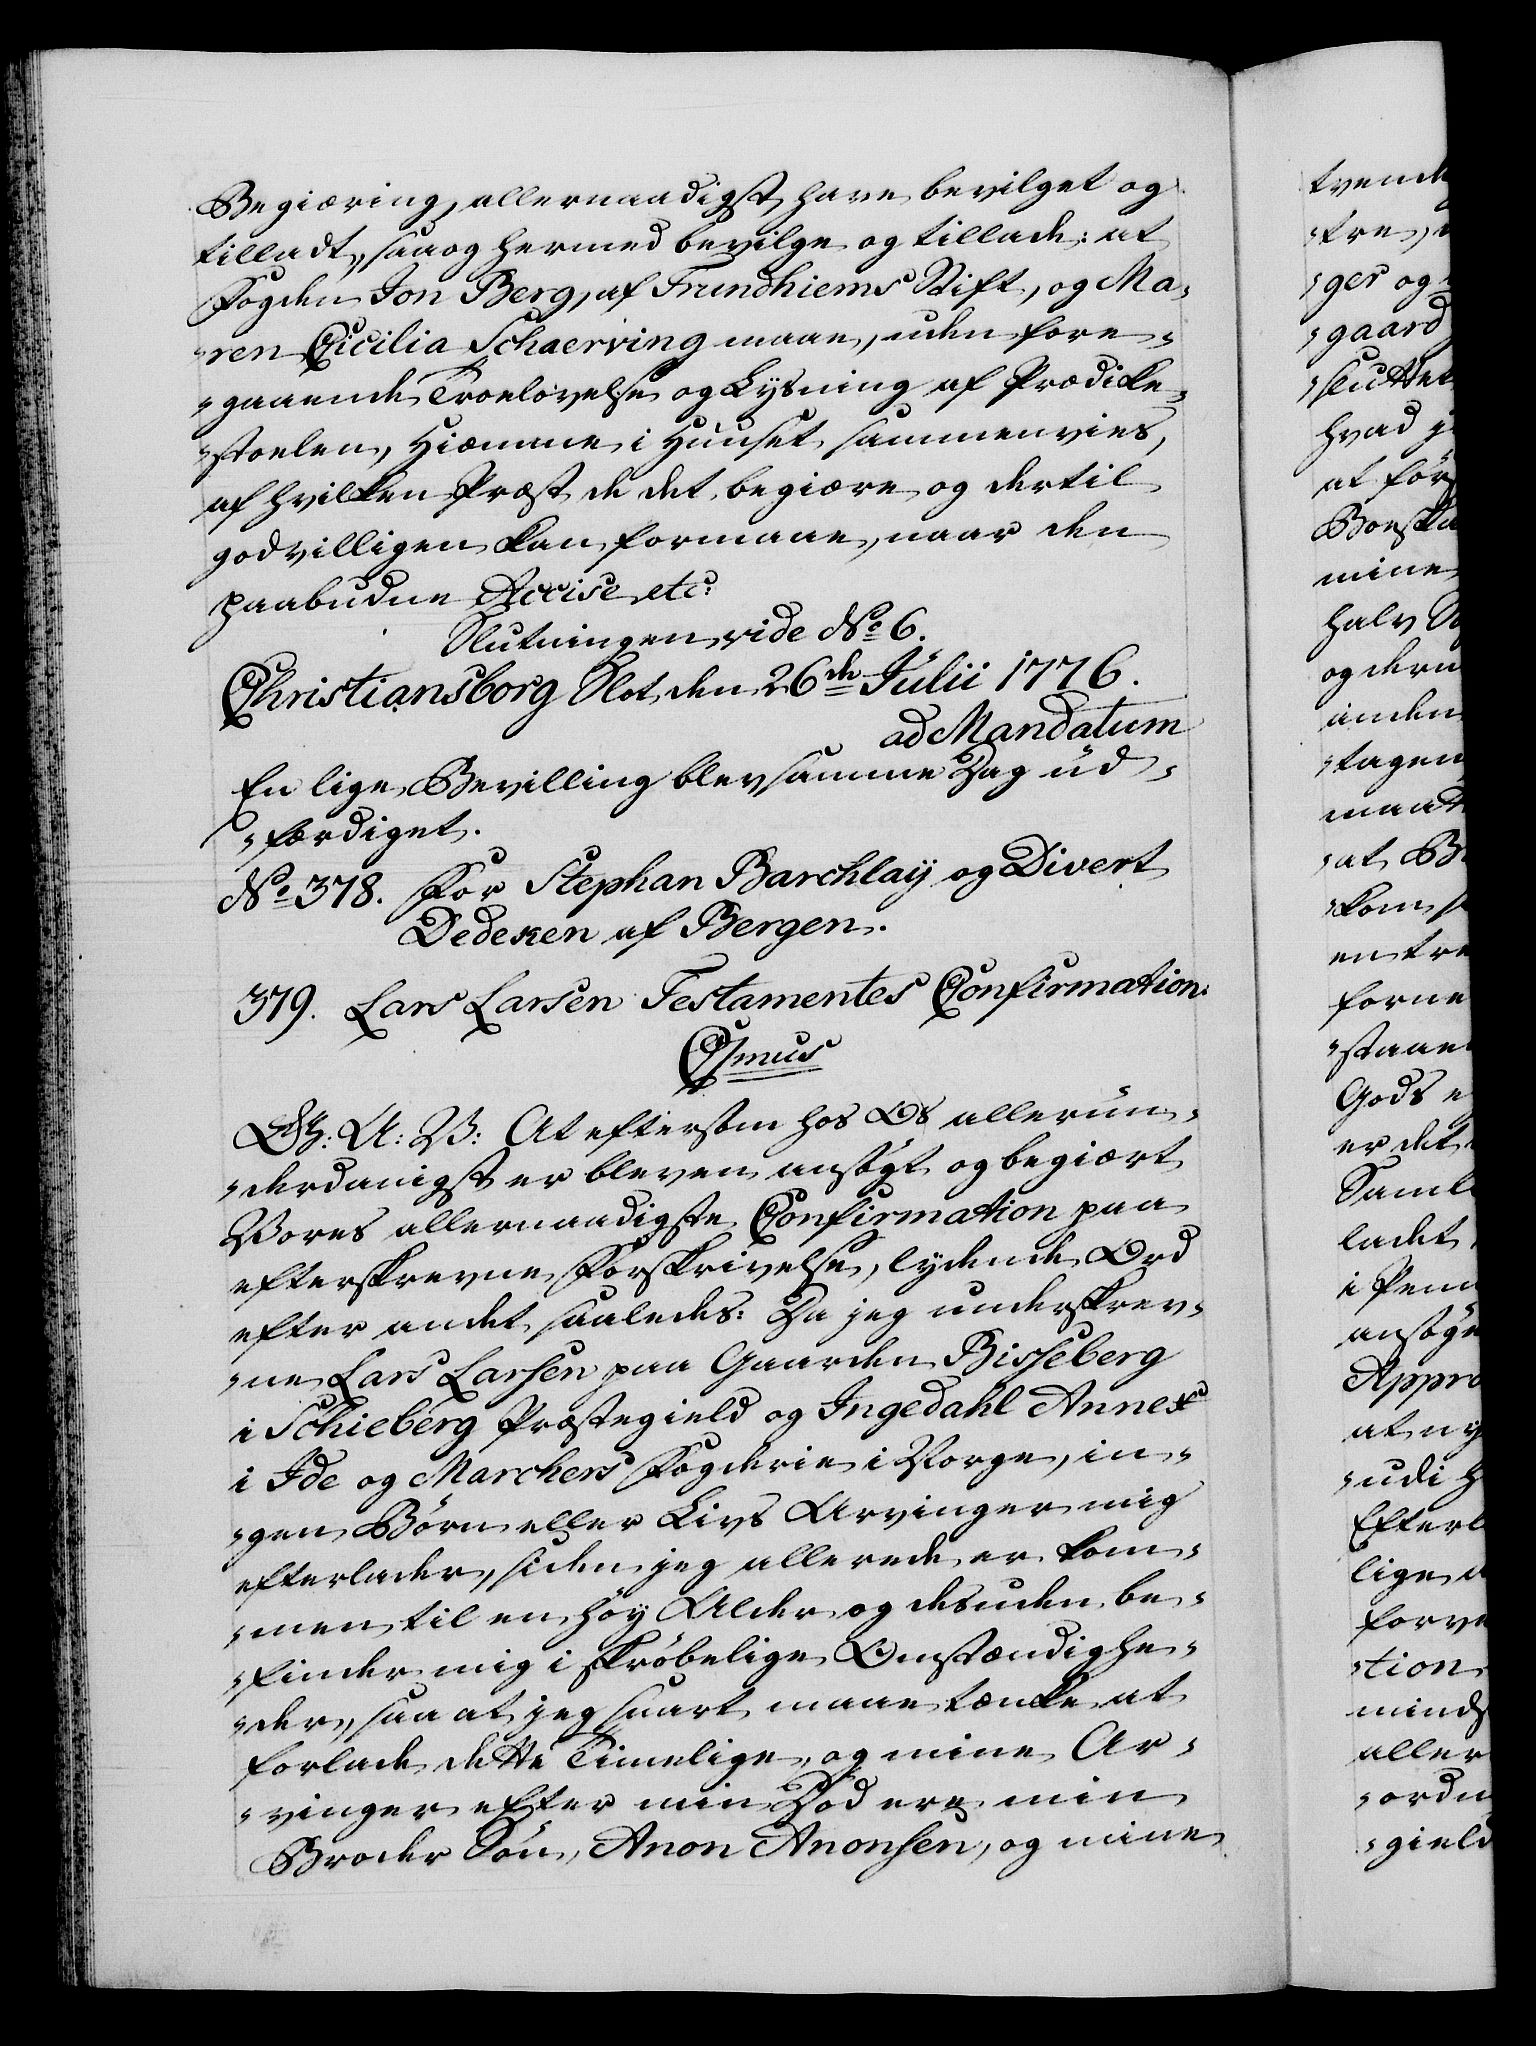 Begiæring, allernaadigst have bevilget og
tilladt, saa og hermed bevilge og tillade: at
Fogden Jon Berg, af Trundhiems Stift, og Ma-
-ren Cicilia Schaerving maae, uden fore-
-gaaende Troelovelse og Lysning af Prædicke-
-stoelen, hiemme i Huuset sammenvies,
af hvilken Præst de det begiære og dertil
godvilligen kan formaae, naar den
paabudne Accise etc:
Slutningen vide No 6.
Christiansborg Slot den 26de Julii 1776.
ad Mandatum
En lige Bevilling blev samme Dag ud-
-færdiget.
No 378. For Stephan Barchlaÿ og Divert
Dedeken af Bergen.
379. Lars Larsen Testamentes Confirmation.
Csmus
G: A: V: At eftersom hos Os allerun-
-derdanigst er bleven ansøgt og begiært
Vores allernaadigste Confirmation paa
efterskrevne Forskrivelse, lydende Ord
efter andet saaledes: Da jeg underskrev-
-ne Lars Larsen paa Gaarden Bisseberg
i Schieberg Præstegield og Ingedahl Annex
i Ide og Marchers Fogderie i Norge, in-
-gen Børn eller Livs Arvinger mig
efterlader, siden jeg allerede er kom-
-men til en høy Alder og desuden be-
-finder mig i skrøbelige Omstændighe-
-der, saa at jeg snart maae tænke at
forlade dette Timelige, og mine Ar-
-vinger efter min Død ere min
Broder Søn, Anon Anonsen, og mine